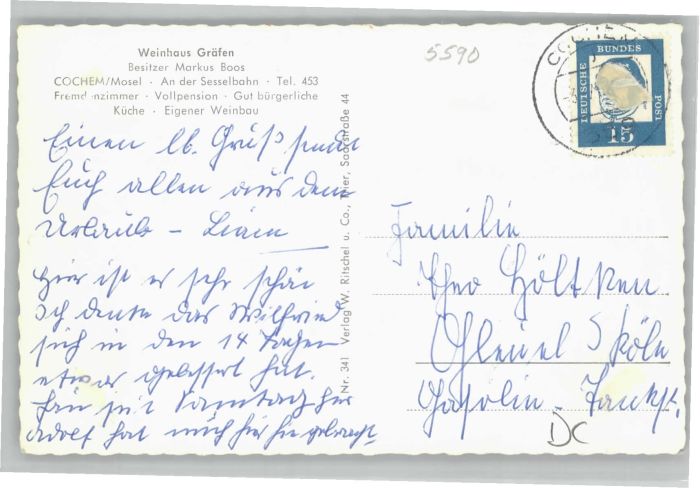 Weinhaus Gräfen
Besitzer Markus Boos
COCHEM/Mosel · An der Sesselbahn · Tel. 453
Fremdenzimmer · Vollpension · Gut bürgerliche
Küche · Eigener Weinbau
5590
COCHEM
DEUTSCHE BUNDESPOST
15
Einen lb. Gruß sendet
Euch allen aus dem
Urlaub –
Hier ist es sehr schön
Ich denke das Wilfried
sich in den 14 Tagen
etwas gebessert hat.
seit Samstag hier
Adolf hat mich hier hin gebracht.
Nr. 341 Verlag W. Ritschel u. Co., Trier, Saarstraße 44
Familie
Theo Höltken
Gleuel b Köln
Gasolin - Tankst.
DC